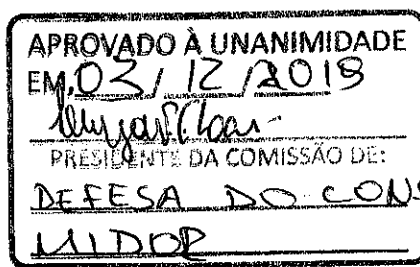 APROVADO À UNANIMIDADE
EM, 03 / 12 / 2018
PRESIDENTE DA COMISSÃO DE:
DEFESA DO CONS
MIDOR